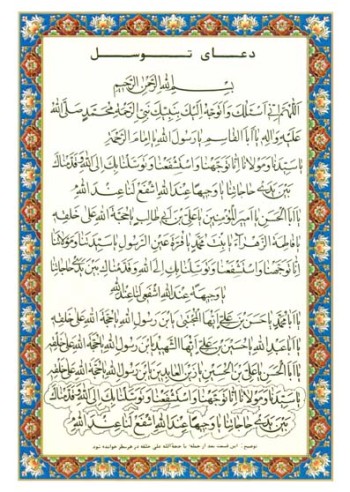 دعای توسل
بسم الله الرحمن الرحیم
اللهم انی اسئلک و اتوجه الیک بنبیک نبی الرحمة محمد صلی الله
علیه و اله یا ابا القاسم یا رسول الله یا امام الرحمة
یا سیدنا و مولانا انا توجهنا و استشفعنا و توسلنا بک الی الله و قدمناک
بین یدی حاجاتنا یا وجیها عند الله اشفع لنا عند الله
یا ابا الحسن یا امیر المؤمنین یا علی بن ابی طالب یا حجة الله علی خلقه
یا فاطمة الزهراء یا بنت محمد یا قرة عین الرسول یا سیدتنا و مولاتنا
انا توجهنا و استشفعنا و توسلنا بک الی الله و قدمناک بین یدی حاجاتنا
یا وجیهة عند الله اشفعی لنا عند الله
یا ابا محمد یا حسن بن علی ایها المجتبی یابن رسول الله یا حجة الله علی خلقه
یا ابا عبد الله یا حسین بن علی ایها الشهید یابن رسول الله یا حجة الله علی خلقه
یا ابا الحسن یا علی بن الحسین یا زین العابدین یابن رسول الله یا حجة الله علی خلقه
یا سیدنا و مولانا انا توجهنا و استشفعنا و توسلنا بک الی الله و قدمناک
بین یدی حاجاتنا یا وجیها عند الله اشفع لنا عند الله
توضیح: این قسمت بعد از جمله: یا حجة الله علی خلقه در هر سطر خوانده شود